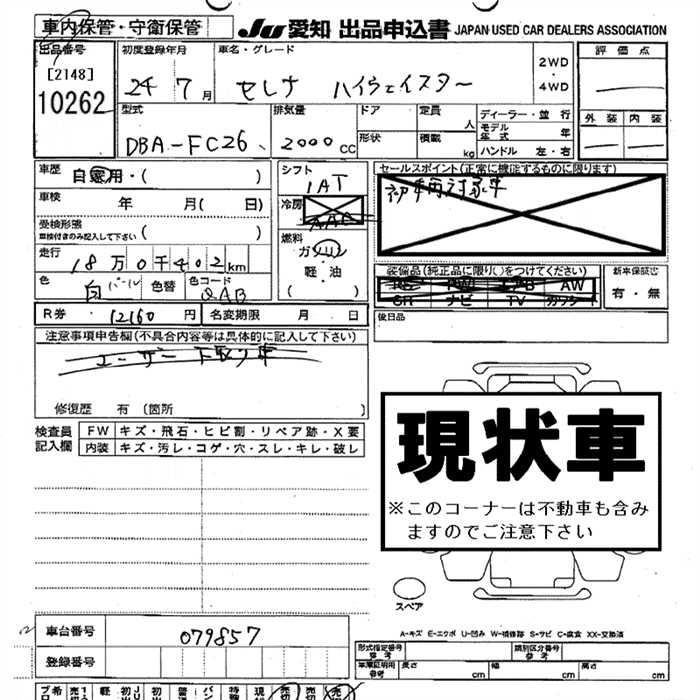 車内保管・守衛保管
JU 愛知 出品申込書 JAPAN USED CAR DEALERS ASSOCIATION
出品番号
[2148]
10262
初度登録年月
24 7月
車名・グレード
セレナ ハイウェイスター
2WD
・
4WD
評価点
外装 内装
型式
DBA-FC26
排気量
2000cc
ドア
形状
定員 人
積載 kg
ディーラー・並行
モデル年式 年
ハンドル 左・右
車歴
自家用・( )
車検 年 月( 日)
受検形態
車検付きのみ記入して下さい ( )
走行
18万0千402km
色
白パール
色替
色コード
QAB
シフト
1AT
冷房
AAC
燃料
ガソリン
軽・油
( )
セールスポイント(正常に機能するものに限ります)
装備品(純正品に限り○をつけてください)
PS PW エアB AW
SR ナビ TV カワシート
新車保証書
有・無
後日品
R券 12160円
名変期限 月 日
注意事項申告欄(不具合内容等は具体的に記入して下さい)
ユーザー下取り車
修復歴 有(箇所 )
検査員記入欄
FW キズ・飛石・ヒビ割・リペア跡・X要
内装 キズ・汚レ・コゲ・穴・スレ・キレ・破レ
現状車
※このコーナーは不動車も含み
ますのでご注意下さい
スペア
A-キズ E-エクボ U-凹み W-補修跡 S-サビ C-腐食 XX-交換済
車台番号
079857
登録番号
形式指定番号
参考
類別区分番号
参考
車庫証明用
参考
長さ cm
幅 cm
高さ cm